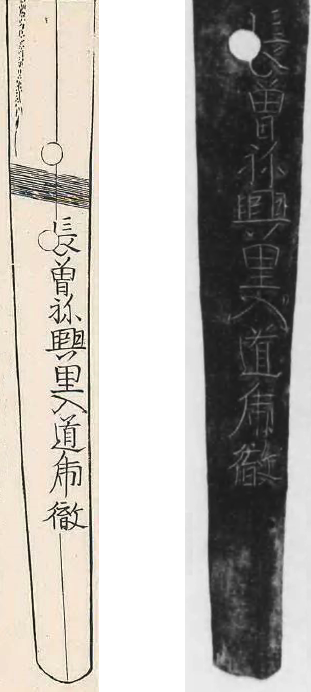 長曽祢興里入道乕徹
長曽祢興里入道乕徹